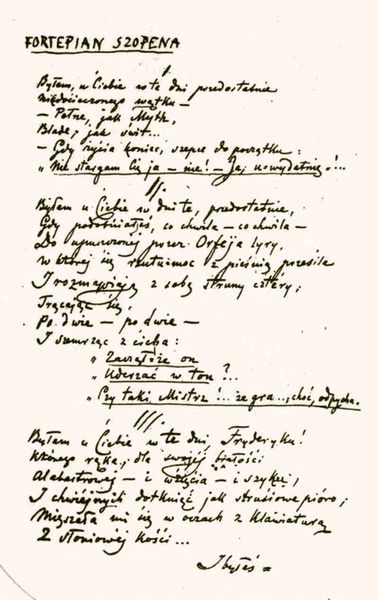 FORTEPIAN SZOPENA
I.
Byłem u Ciebie w te dni przedostatnie
Niedocieczonego wątku —
— Pełne, jak Myth,
Blade, jak świt...
— Gdy życia koniec, szepce do początku:
„Nie stargam Cię ja — nie! — Ja, uwydatnię!...
II.
Byłem u Ciebie w dni te, przedostatnie,
Gdy podobniałeś, co chwila — co chwila —
Do upuszczonej przez Orfeja lyry,
W której się rzutu-moc z pieśnią przesila
I rozmawiają z sobą struny cztéry,
Trącając się,
Po dwie — po dwie —
I szemrząc z cicha:
„Zacząłże on
„Uderzać w ton?...
„Czy taki Mistrz!... że gra..., choć, odpycha.
III.
Byłem u Ciebie w te dni, Fryderyku!
Którego ręka, dla swojéj białości
Alabastrowéj — i wzięcia — i szyku,
I chwiejnych dotknięć jak strusiowe pióro;
Mięszała mi się w oczach z klawiaturą
Z słoniowéj kości...
I byłeś =